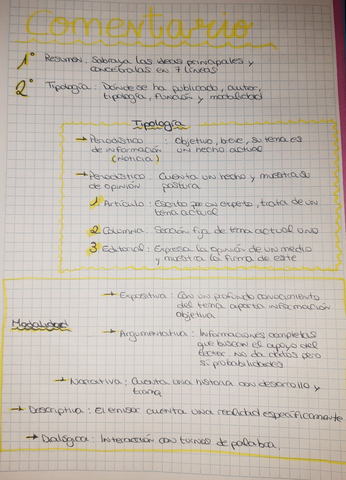 Comentario
1° Resumen, Sobraya las ideas principales y
concentralas en 7 líneas
2° Tipología: Dónde se ha publicado, autor,
tipología, función y modalidad
Tipología
→ Periodístico : Objetivo, breve, su tema es
de información un hecho actual
(Noticia)
→ Periodístico : Cuenta un hecho y muestra su
de opinión postura
1 Artículo: Escrito por un experto, trata de un
tema actual
2 Columna: Sección fija de tema actual uno
3 Editorial: Expresa la opinión de un medio
y muestra la firma de este
Modalidad
→ Expositiva: Con un profundo conocimiento
del tema aporta información
objetiva
→ Argumentativa: Informaciones completas
que buscan el apoyo del
lector. No da datos pero
si probabilidades
→ Narrativa: Cuenta una historia con desarrollo y
trama
→ Descriptiva: El emisor cuenta una realidad específicamente
→ Dialógica: Interacción con turnos de palabra